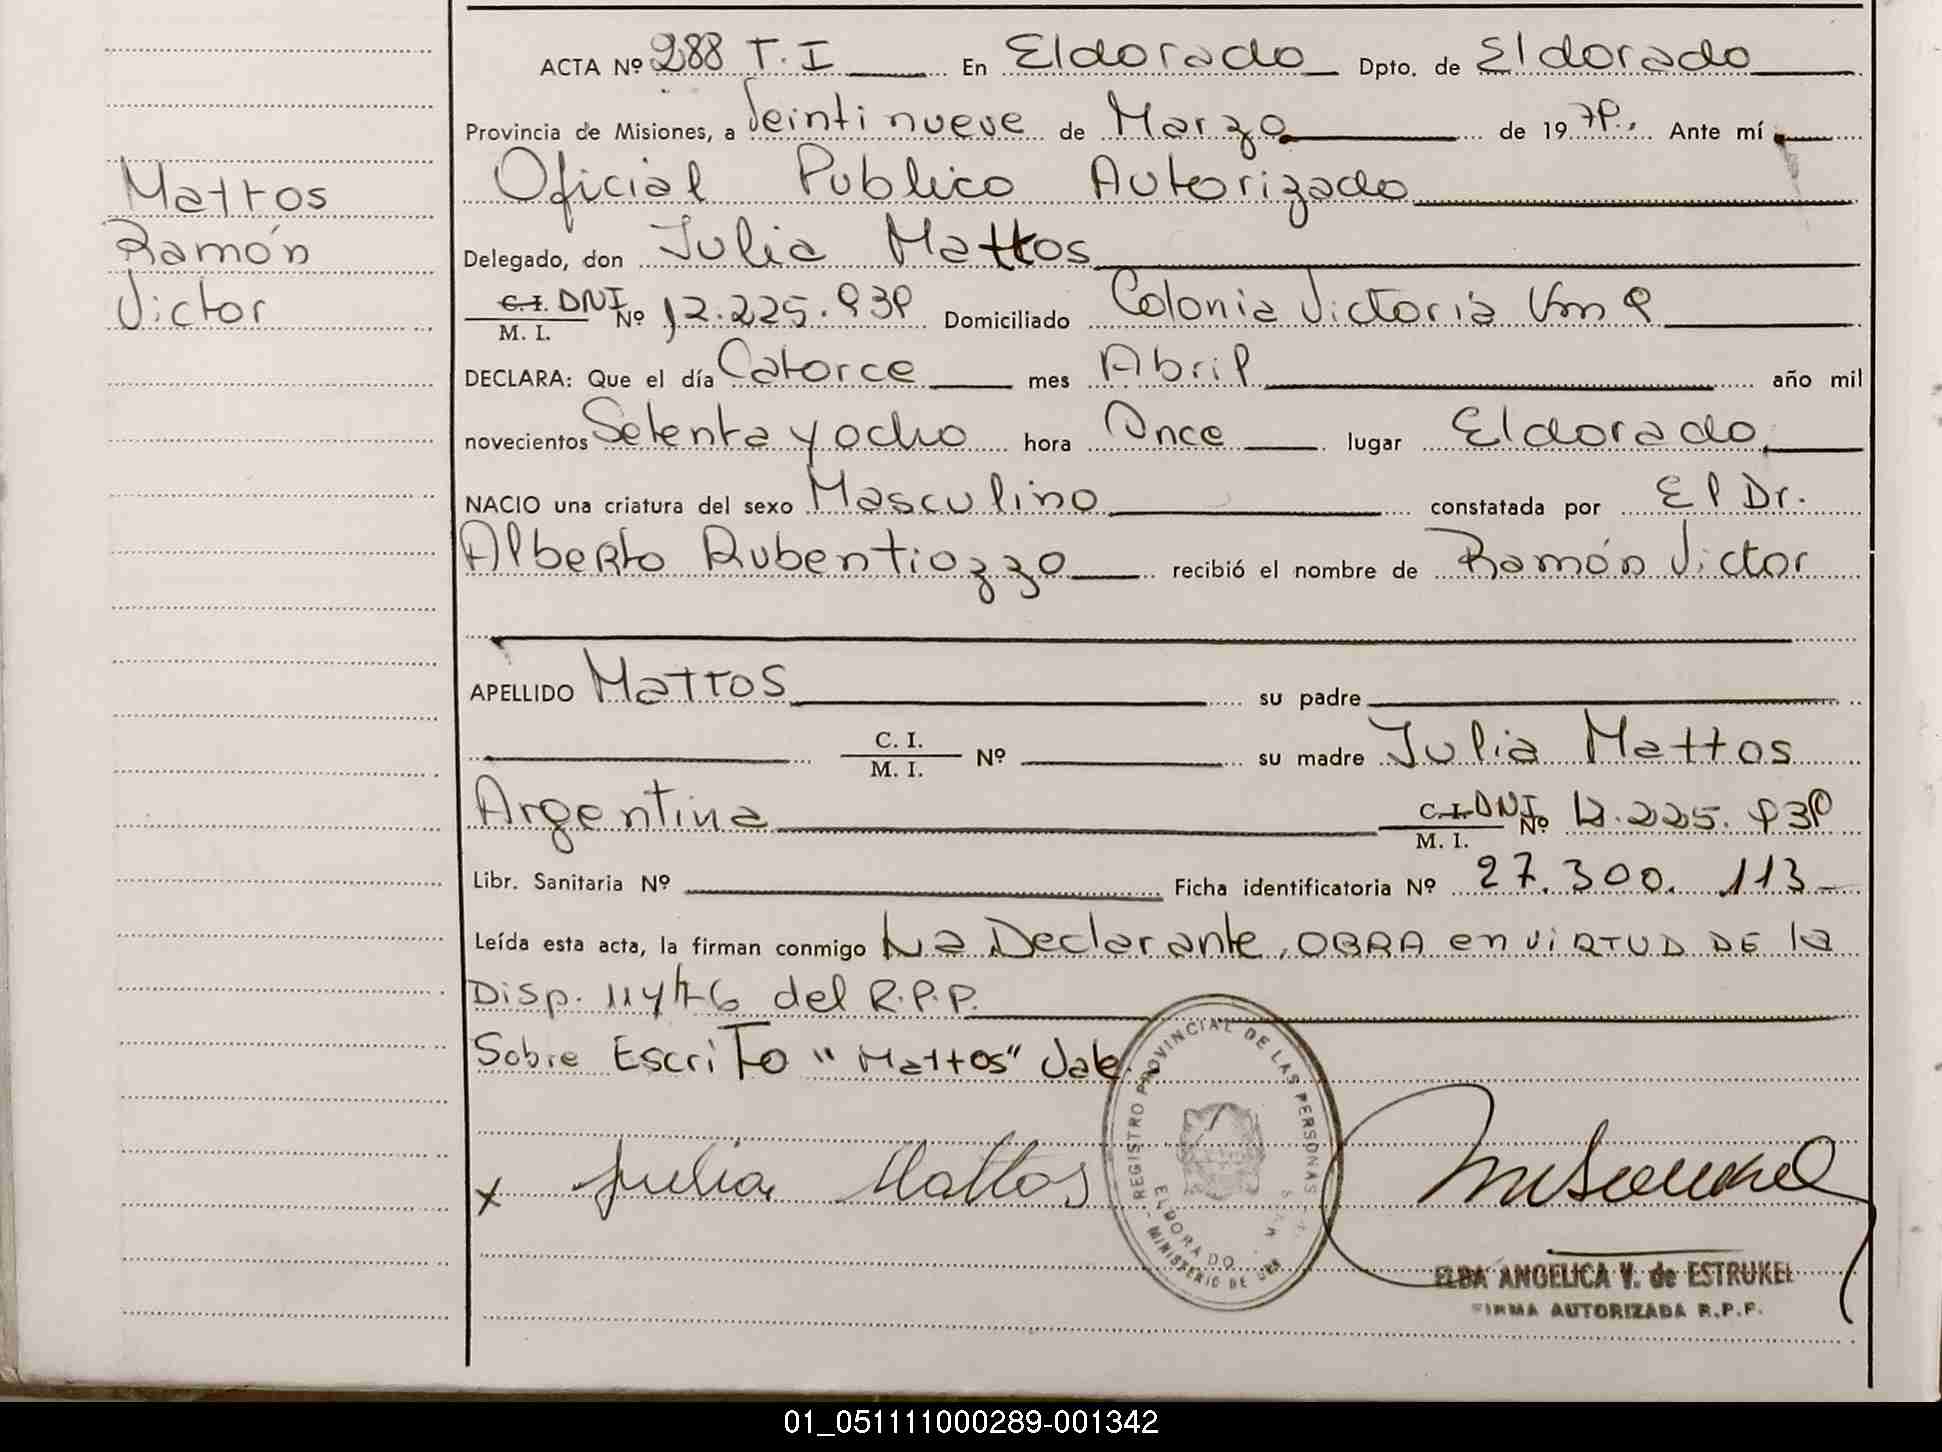 ACTA Nº 288 T. I En Eldorado Dpto. de Eldorado
Provincia de Misiones, a Veintinueve de Marzo de 19 79. Ante mí
Oficial Publico Autorizado
Mattos
Ramón
Victor
Delegado, don Julia Mattos
C.I. DNI
M. I. Nº 12.225.939 Domiciliado Colonia Victoria Vm 9
DECLARA: Que el día Catorce mes Abril año mil
novecientos Setenta y ocho hora Once lugar Eldorado
NACIO una criatura del sexo Masculino constatada por El Dr.
Alberto Rubentiozzo recibió el nombre de Ramón Victor
APELLIDO Mattos su padre
C. I.
M. I. Nº su madre Julia Mattos
Argentina C.I. DNI
M. I. Nº 12.225.939
Libr. Sanitaria Nº Ficha identificatoria Nº 27.300.113
Leída esta acta, la firman conmigo La Declarante, OBRA en ViRTUD DE la
Disp. 114/76 del R.P.P.
Sobre EscriTo "Mattos" Vale
x Julia Mattos
REGISTRO PROVINCIAL DE LAS PERSONAS
ELDORADO
MINISTERIO DE GOB
ELBA ANGELICA V. de ESTRUKEL
FIRMA AUTORIZADA R.P.P.
01_051111000289-001342